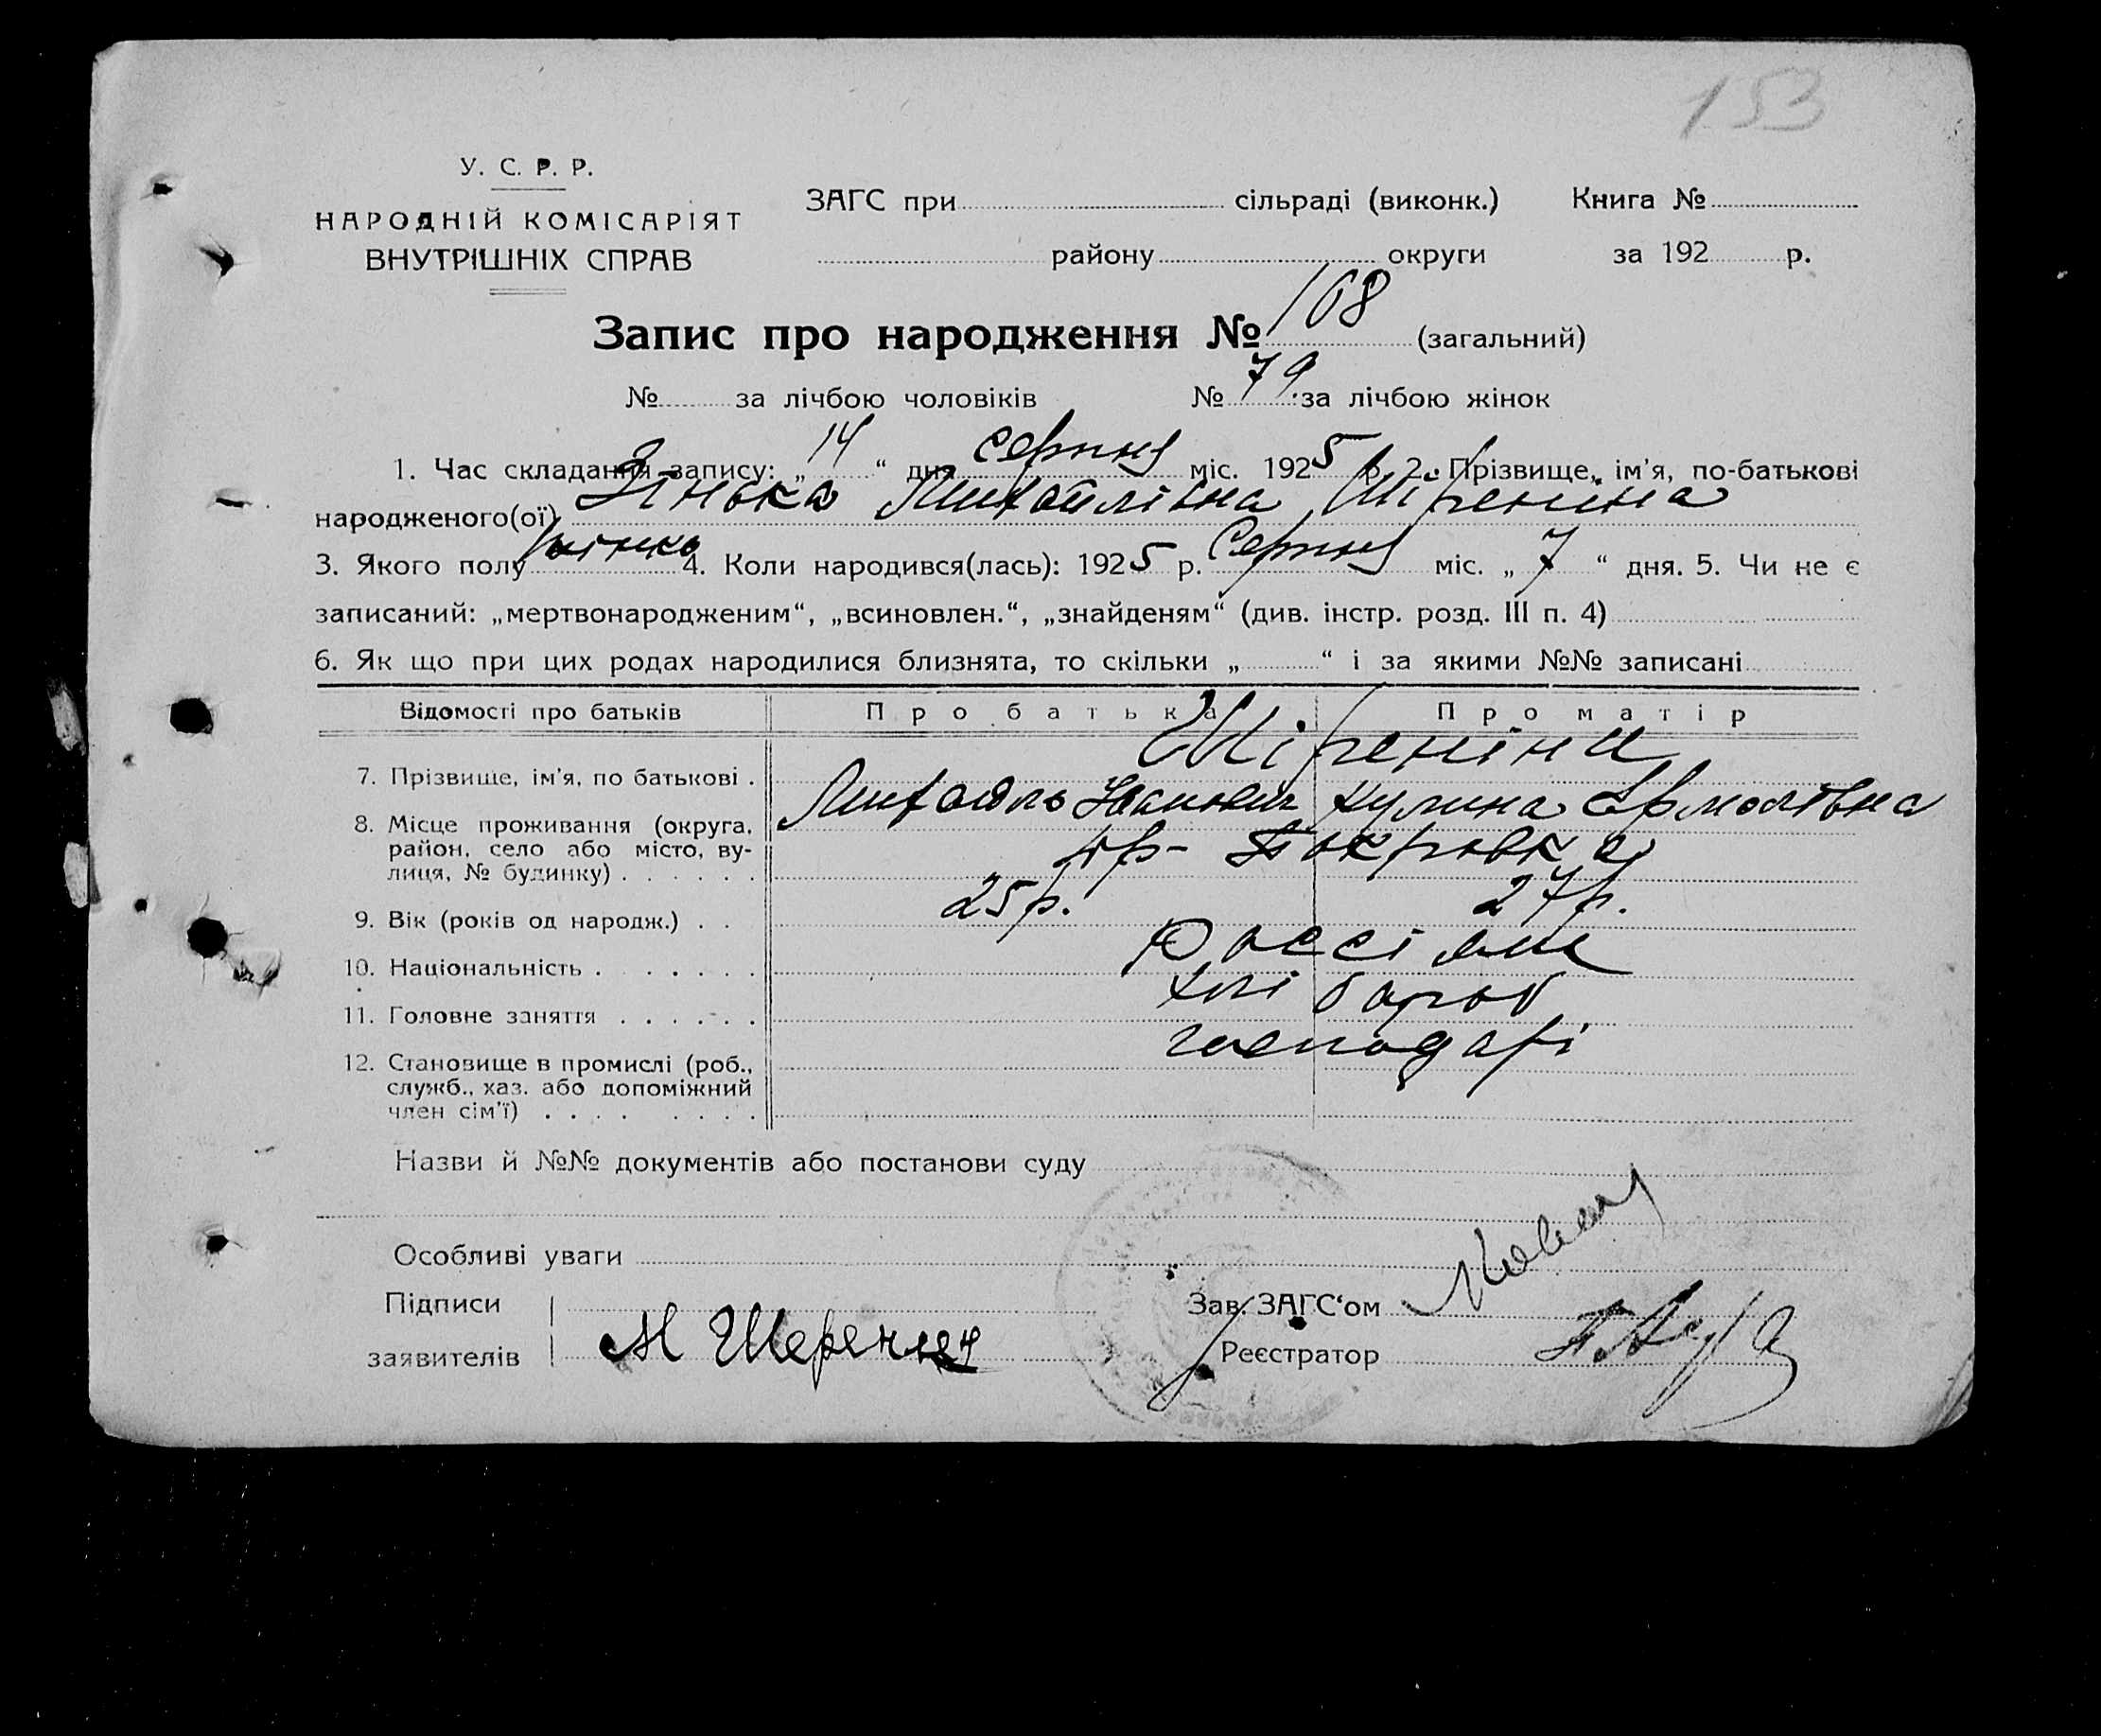 153
У. С. Р. Р.
НАРОДНІЙ КОМІСАРІЯТ
ВНУТРІШНІХ СПРАВ
ЗАГС при сільраді (виконк.) Книга №
району округи за 192 р.
Запис про народження № 168 (загальний)
№ за лічбою чоловіків № 79 за лічбою жінок
1. Час складання запису: „ 14 “ дня серпня міс. 1925 р. 2. Прізвище, ім'я, по-батькові
народженого(ої) Зінька Михайлівна Шіреніна
3. Якого полу жінка 4. Коли народився(лась): 1925 р. Серпня міс. „ 7 “ дня. 5. Чи не є
записаний: „мертвонародженим“, „всиновлен.“, „знайденям“ (див. інстр. розд. III п. 4)
6. Як що при цих родах народилися близнята, то скільки „ “ і за якими №№ записані
Відомості про батьків Про батька Про матір
Шіреніни
7. Прізвище, ім'я, по батькові . Михаель Іванович Кулина Ермолівна
8. Місце проживання (округа, район, село або місто, вулиця, № будинку) . . . . . . Покровка
9. Вік (років од народж.) . . 25 р. 27 р.
10. Національність . . . . . . . Россіяне
11. Головне заняття . . . . . . хлібороб
господарі
12. Становище в промислі (роб.,
служб., хаз. або допоміжний
член сім'ї) . . . . . . . .
Назви й №№ документів або постанови суду
Особливі уваги
Підписи
заявителів М Шеренин
Зав. ЗАГС‘ом
Реєстратор